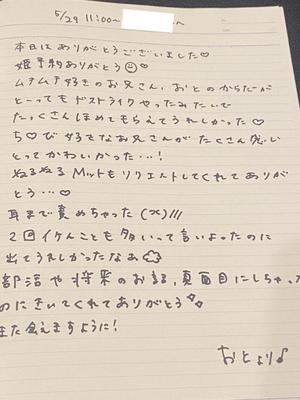 5/29 11:00〜
本日はありがとうございました♡
姫予約ありがとう☺♡
ムチムチ好きのお兄さん、おとのからだが
とってもドストライクやったみたいで
たっくさんほめてもらえてうれしかった♡
ち♡び好きなお兄さんがたくさん感じ
とってかわいかった…!
ぬるぬるMットもリクエストしてくれてありが
とう…♡
耳まで責めちゃった(×)///
2回イケんことも多いって言いよったのに
出てうれしかったなぁ
部活や将来のお話、真面目にしちゃった
のにきいてくれてありがとう
また会えますように!
おとより♪